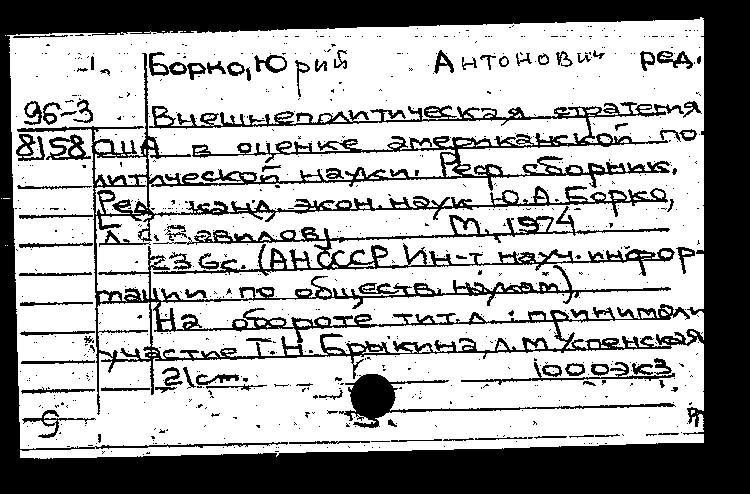 Борко, Юрий Антонович ред.
96-3 Внешнеполитическая стратегия
8158 США в оценке американской по-
литической науки. Реф. сборник.
[Ред. канд. экон. наук Ю.А. Борко,
Л.С. Вавилов]. М., 1974
236с. (АН СССР. Ин-т науч. инфор-
мации по обществ. наукам).
На обороте тит. л.: принимали
участие Т.Н. Брыкина, Л.М. Успенская
21 см. 1000 экз.
9